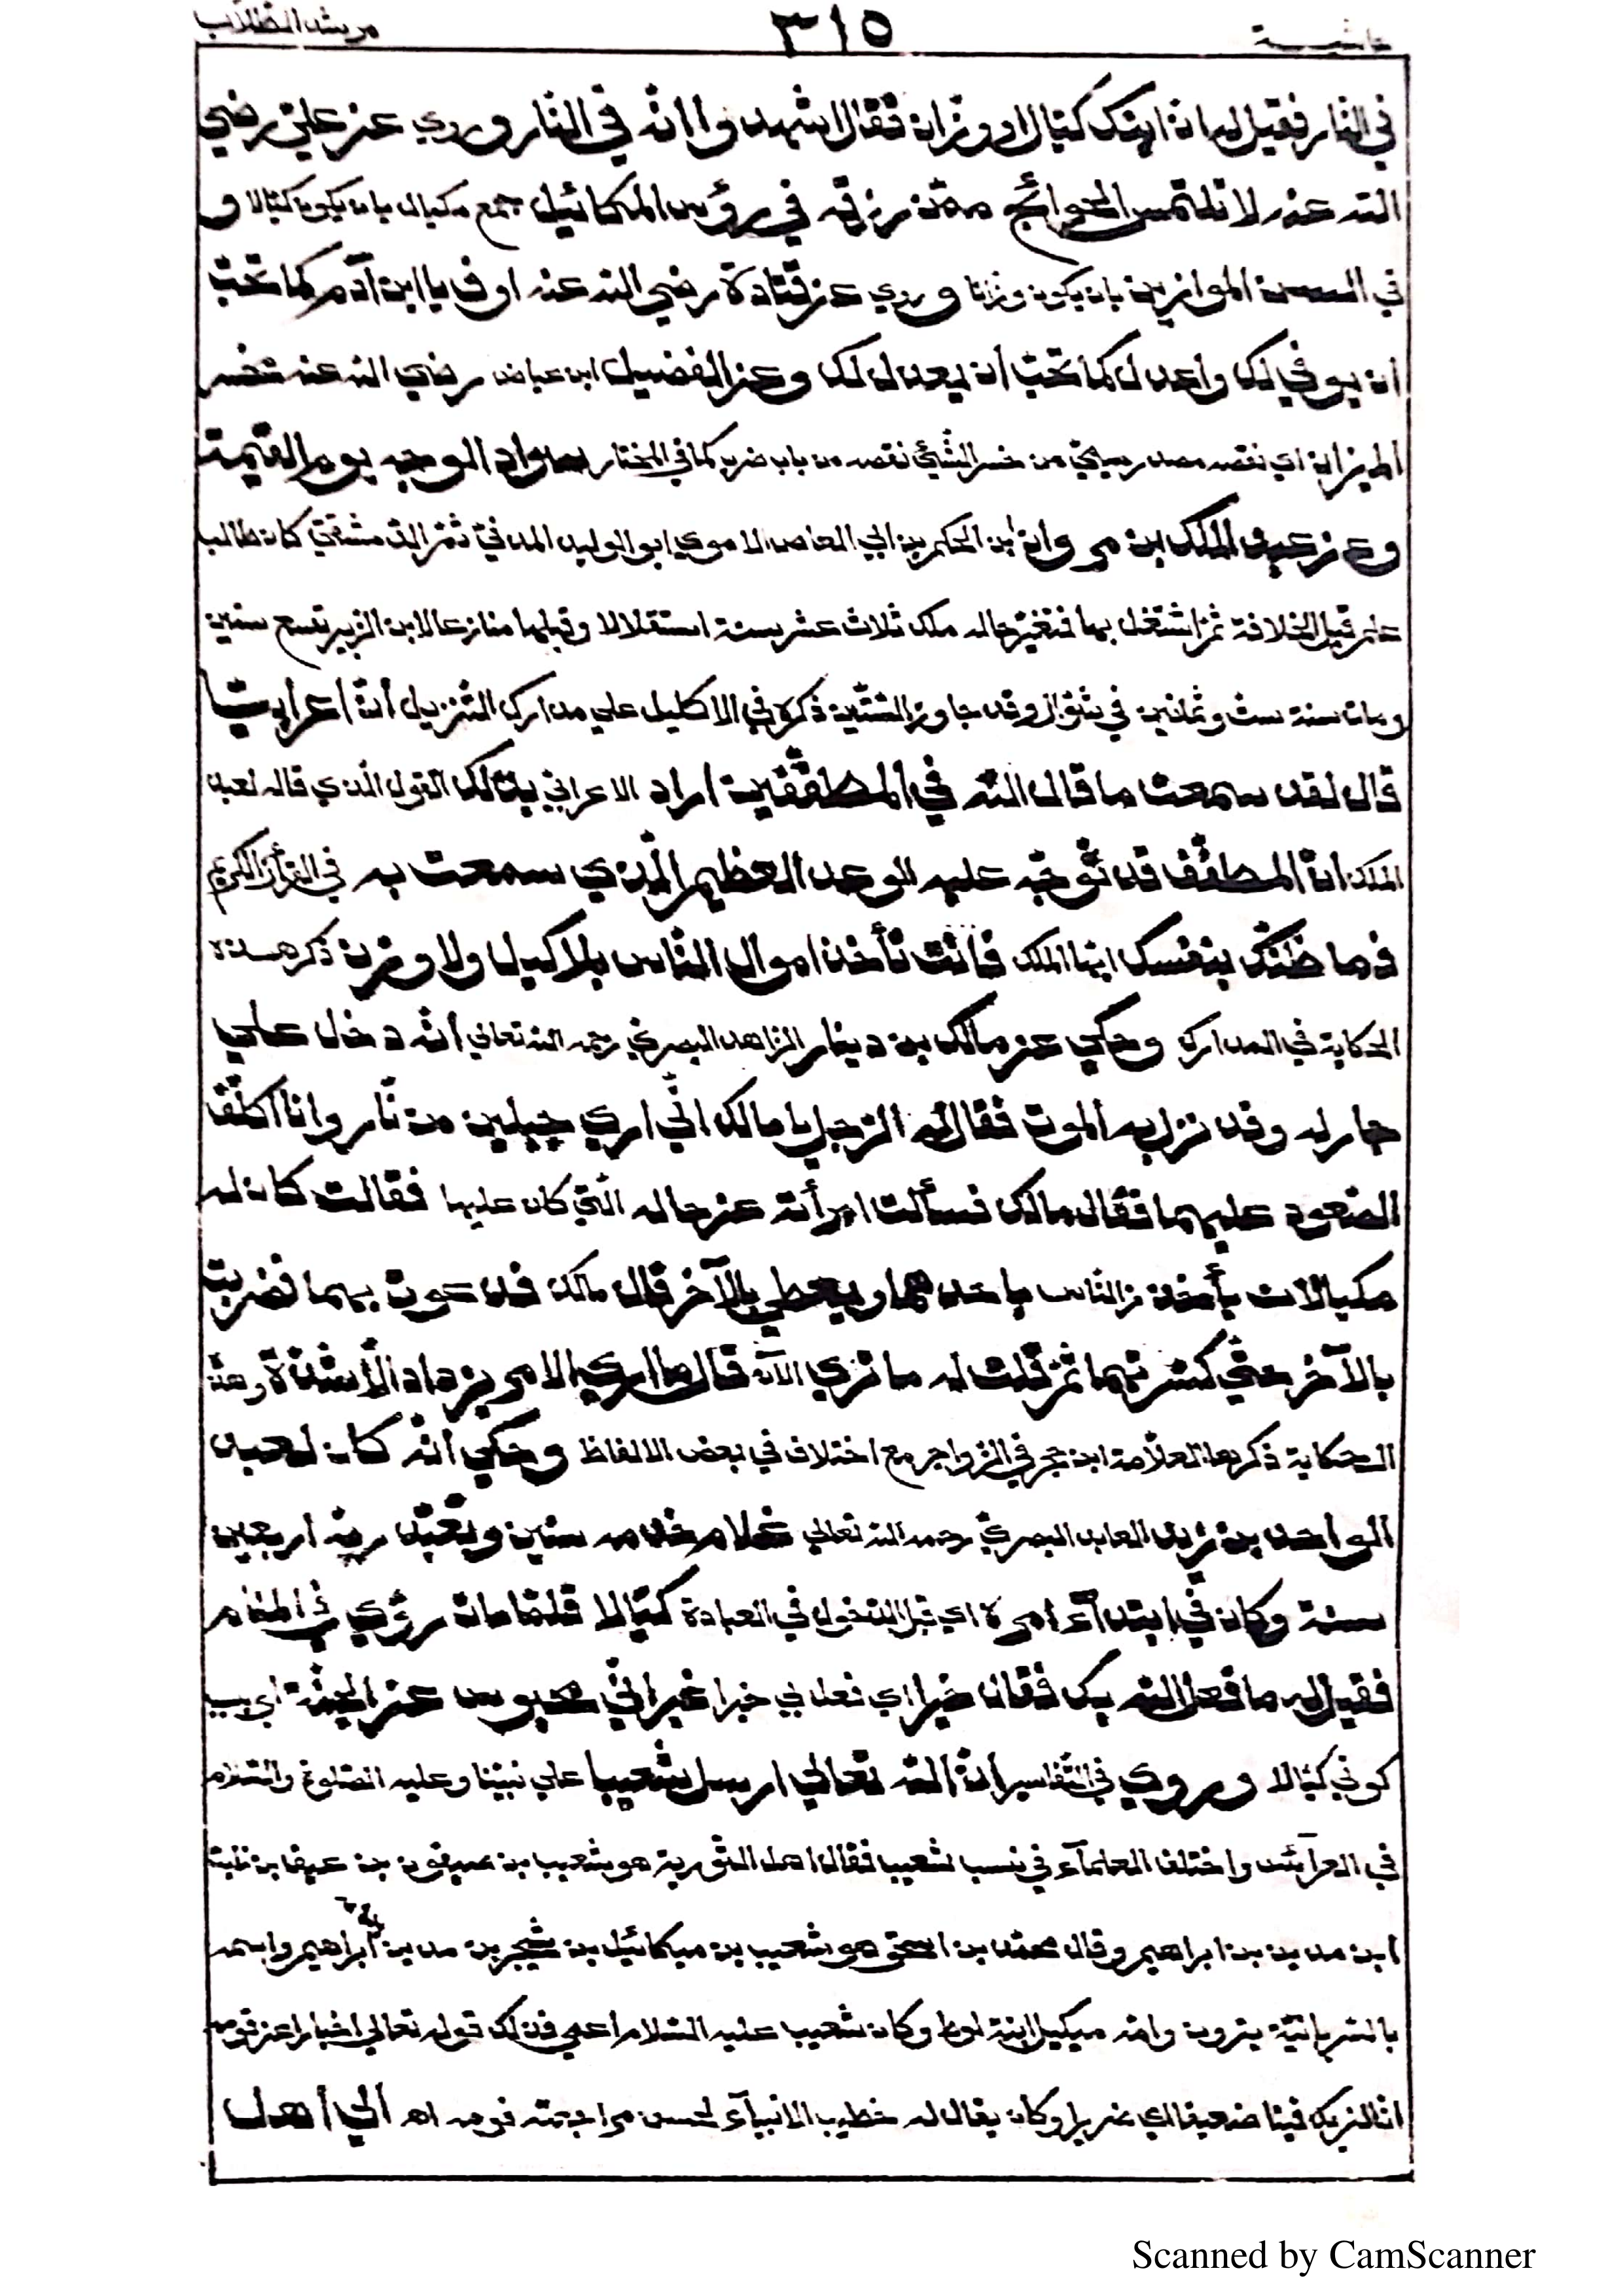 حاشية ٣١٥ مرشد الطلاب
في النار فقيل له انّ ابنك كيّال او وزان فقال اشهدوا انّه في النار وروي عن عليّ رضي
الله عنه لا تلتمس الحوائج ممّن رزقه في رؤس المكائيل جمع مكيال بان يكون كيّالا و
في السن الموازين بان يكون وزانا وروي عن قتادة رضي الله عنه اوف يا ابن آدم كما تحبّ
أن يوفي لك واعدل كما تحبّ أن يعدل لك وعن الفضيل ابن عياض رضي الله عنه بخس
الميزان اي نقصه مصدر من خسر الشّئ نقصه من باب ضرب كما في المختار سواد الوجه يوم القيمة
وعن عبد الملك بن مروان ابن الحكم بن ابي العاص الاموي ابو الوليد المدني ثمّ الدّمشقيّ كان طالب
علم قبل الخلافة ثمّ اشتغل بها فتغيّر حاله ملك ثلاث عشر سنة استقلالا وقبلها منازعا لابن الزبير تسع سنين
ومات سنة ست وثمانين في شوّال وقد جاوز السّتّين ذكره في الاكليل علي مدارك التنزيل أنّ اعرابيّا
قال لقد سمعت ما قال الله في المطفّفين اراد الاعرابي بذلك القول الّذي قاله لعبد
الملك انّ المطفّف قد توجّه عليه الوعد العظيم الّذي سمعت به في القرأن الكريم
فما ظنّك بنفسك ايّها الملك فانت تأخذ اموال النّاس بلا كيل ولا وزن ذكر هذه
الحكاية في المدارك وحكي عن مالك بن دينار الزاهد البصري رحمه الله تعالي انّه دخل علي
جار له وقد نزل به الموت فقال له الرّجل يا مالك انّي اري جبلين من نّار وانا اكلّف
الصّعود عليهما فقال مالك فسألت امرأته عن حاله الّتي كان عليها فقالت كان له
مكيالان يأخذ من النّاس باحدهما ويعطي بالآخر قال مالك فدعوت بهما فضربت
بالآخر حتّي كسّرتهما ثمّ قلت له ما تري الآن قال ما اري الامر يزداد الّا شدّة وهذه
الحكاية ذكرها العلّامة ابن حجر في الزواجر مع اختلاف في بعض الالفاظ وحكي انّه كان لعبد
الواحد بن زيد العابد البصريّ رحمه الله تعالي غلام خدمه سنين وتعبّد ربّه اربعين
سنة وكان في ابتدآء امره اي قبل الدّخول في العبادة كيّالا فلمّا مات رؤي في المنام
فقيل له ما فعل الله بك فقال خيرا اي فعل بي خيرا غير انّي محبوس عن الجنّة اي بسبب
كوني كيّالا وروي في التّفاسير انّ الله تعالي ارسل شعيبا علي نبيّنا وعليه الصّلوة والسّلام
في العرآئس واختلف العلمآء في نسب شعيب فقال اهل التّورية هو شعيب بن صيفون بن عيفا بن نابت
ابن مدين بن ابراهيم وقال محمّد بن اسحق هو شعيب بن ميكائيل بن يشجر بن مدين بن ابراهيم واسمه
بالسّريانيّة يثرون وامّه ميكيل ابنة لوط وكان شعيب عليه السّلام اعمي فذلك قوله تعالي اخبارا عن قومه
انّا لنريك فينا ضعيفا اي ضريرا وكان يقال له خطيب الانبيآء لحسن مراجعته قومه اهـ الي اهل
Scanned by CamScanner